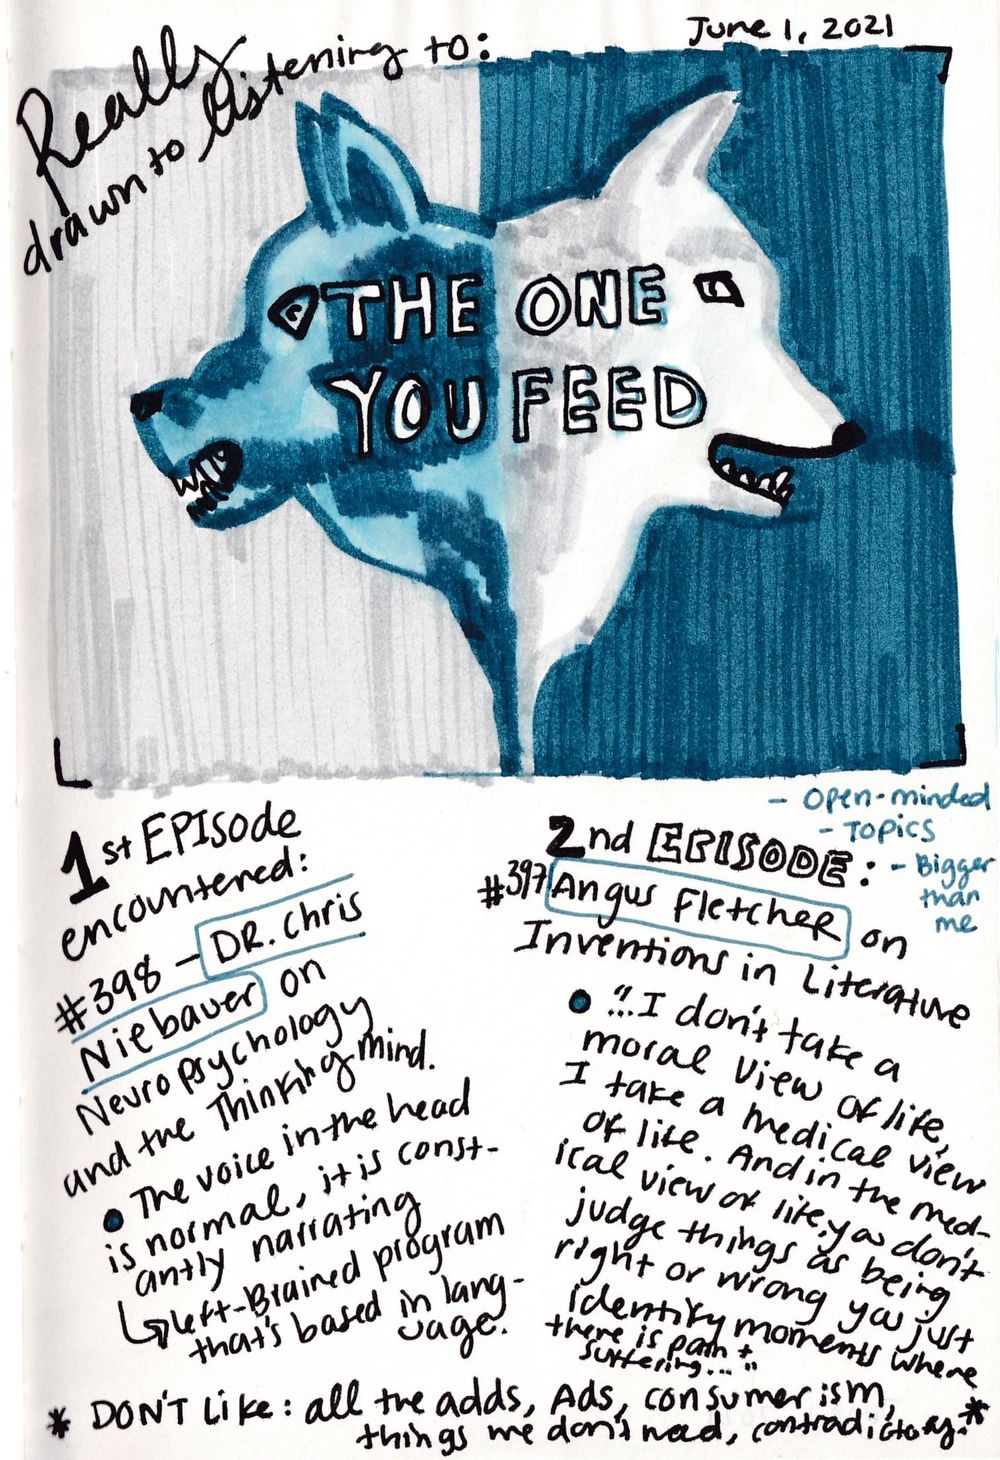 June 1, 2021
Really
drawn to listening to:
THE ONE
YOU FEED
1st EPISode
encountered:
#398 – DR. Chris
Niebauer on
Neuropsychology
and the Thinking mind.
• The voice in the head
is normal, it is const-
antly narrating
left-Brained program
that's based in lang-
uage.
- open-minded
- Topics
- Bigger
than
me
2nd EPISODE:
#397 Angus Fletcher on
Inventions in Literature
• "...I don't take a
moral view of life,
I take a medical view
of life. And in the med-
ical view of life, you don't
judge things as being
right or wrong you just
identify moments where
there is pain +
suffering..."
* DON'T Like: all the adds, Ads, consumerism,
things we don't need, contradictory. *